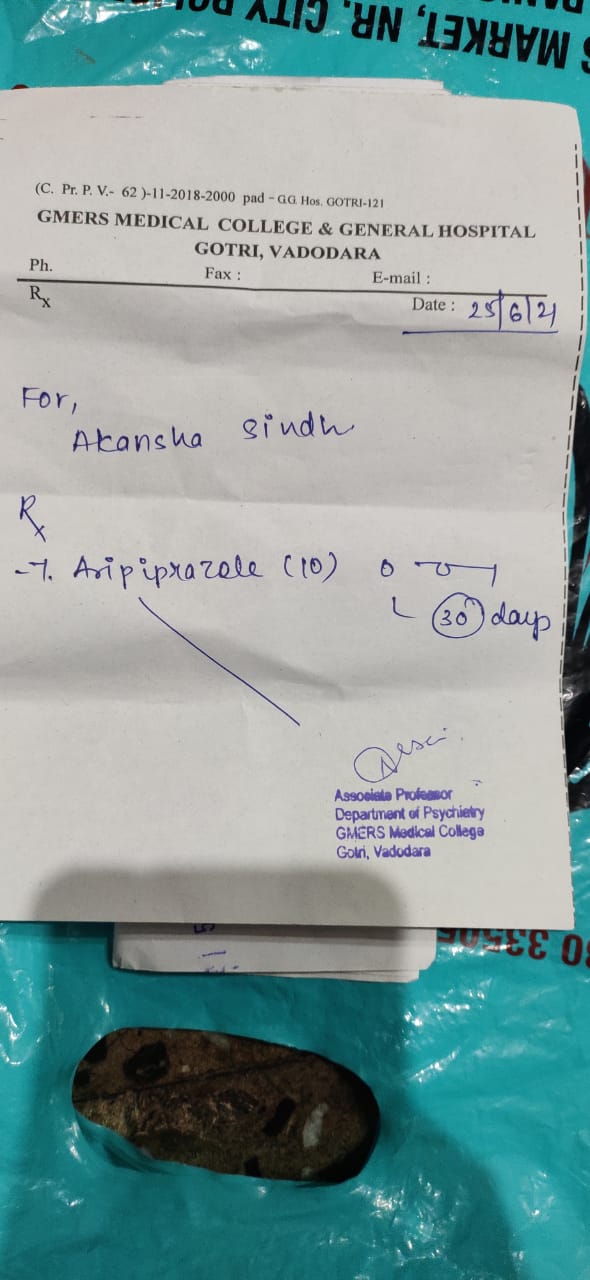 S MARKET, NR. CITY
(C. Pr. P. V.- 62 )-11-2018-2000 pad - G.G. Hos. GOTRI-121
GMERS MEDICAL COLLEGE & GENERAL HOSPITAL
GOTRI, VADODARA
Ph. Fax : E-mail :
Rx Date : 25/6/21
For,
Akansha Sindh
Rx
-T. Aripiprazole (10) 0 — 1
30 days
Associate Professor
Department of Psychiatry
GMERS Medical College
Gotri, Vadodara
0 33505